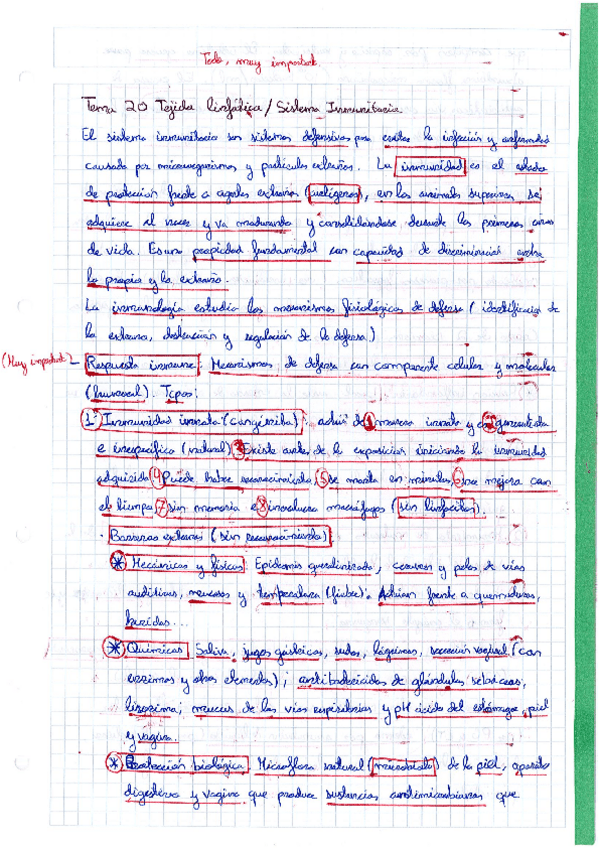 Todo, muy importante.
Tema 20 Tejido linfático / Sistema Inmunitario
El sistema inmunitario son sistemas defensivos para evitar la infección y enfermedad
causada por microorganismos y partículas extrañas. La inmunidad es el estado
de protección frente a agentes extraños (patógenos), en los animales superiores se
adquiere al nacer y va madurando y consolidándose durante los primeros años
de vida. Es una propiedad fundamental con capacidad de discriminación entre
lo propio y lo extraño.
La inmunología estudia los mecanismos fisiológicos de defensa (identificación de
lo extraño, destrucción y regulación de la defensa)
(Muy importante) - Respuesta inmune: Mecanismos de defensa con componente celular y molecular
(humoral). Tipos:
1- Inmunidad innata (congénita): actúa de 1 manera innata y 2 generalizada
e inespecífica (natural) 3 existe antes de la exposición iniciando la inmunidad
adquirida 4 Puede haber reconocimiento, 5 se monta en minutos, 6 no mejora con
el tiempo, 7 sin memoria e 8 involucra macrófagos (sin linfocitos).
Barreras externas (sin reconocimiento)
* Mecánicas y físicas: Epidermis queratinizada, cerumen y pelos de vías
auditivas, mucosas y temperatura (fiebre). Actúan frente a quemaduras,
heridas...
* Químicas: Saliva, jugos gástricos, sudor, lágrimas, secreción vaginal (con
enzimas y otros elementos); antibactericidas de glándulas sebáceas;
lisozima; mucus de las vías respiratorias y pH ácido del estómago, piel
y vagina.
* Protección biológica: Microflora natural (microbiota) de la piel, aparato
digestivo y vagina que produce sustancias antimicrobianas que